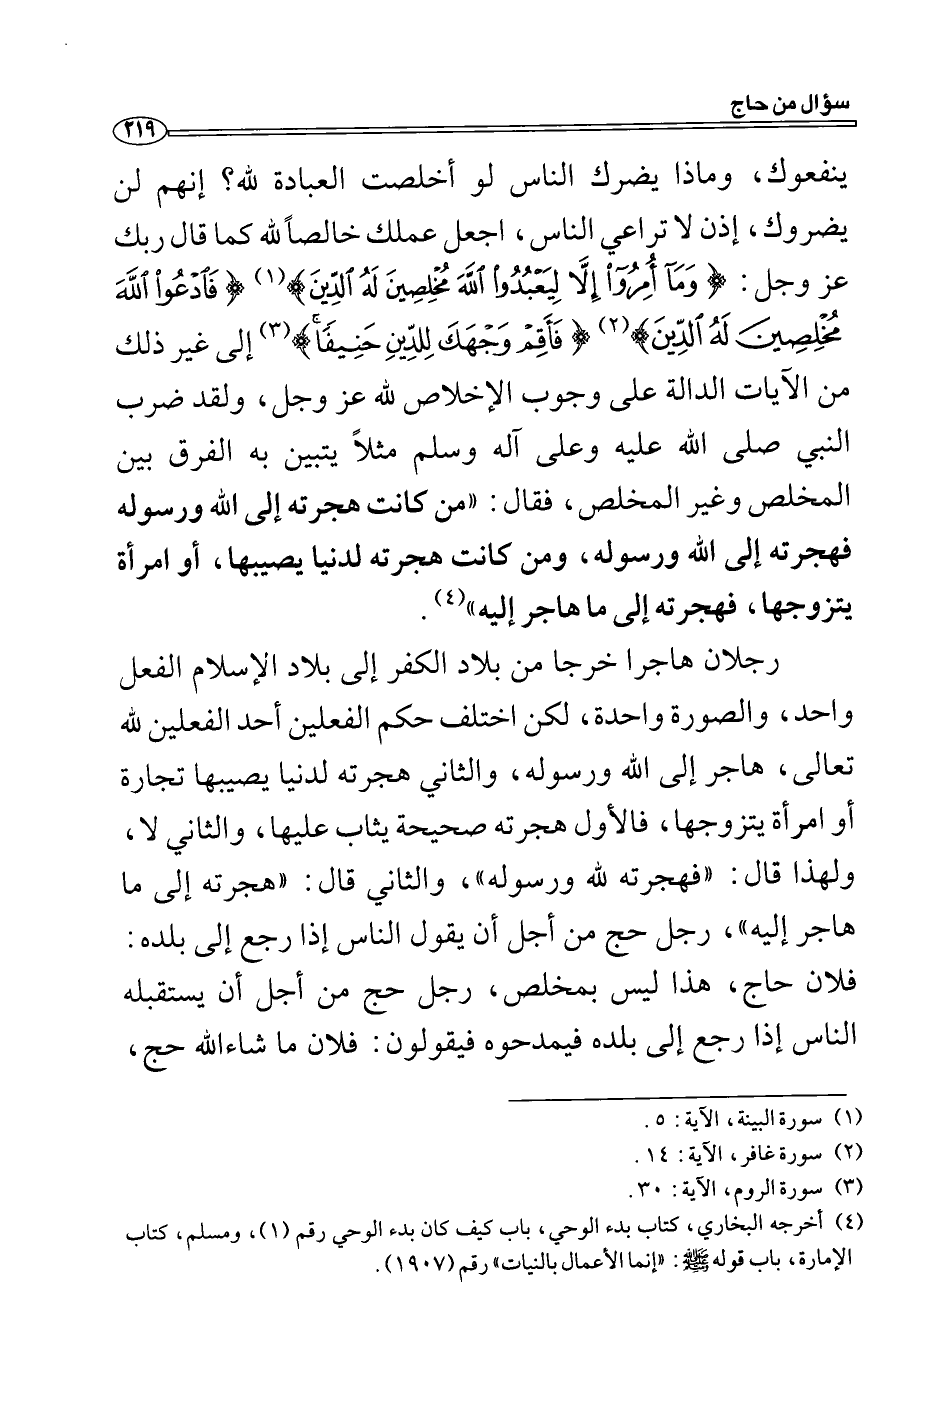 سؤال من حاج
٢١٩
ينفعوك، وماذا يضرك الناس لو أخلصت العبادة لله؟ إنهم لن
يضروك، إذن لا تراعي الناس، اجعل عملك خالصاً لله كما قال ربك
عز وجل: ﴿ وَمَآ أُمِرُوٓا۟ إِلَّا لِيَعْبُدُوا۟ ٱللَّهَ مُخْلِصِينَ لَهُ ٱلدِّينَ﴾(١) ﴿ فَٱدْعُوا۟ ٱللَّهَ
مُخْلِصِينَ لَهُ ٱلدِّينَ﴾(٢) ﴿ فَأَقِمْ وَجْهَكَ لِلدِّينِ حَنِيفًا ۚ﴾(٣) إلى غير ذلك
من الآيات الدالة على وجوب الإخلاص لله عز وجل، ولقد ضرب
النبي صلى الله عليه وعلى آله وسلم مثلاً يتبين به الفرق بين
المخلص وغير المخلص، فقال: «من كانت هجرته إلى الله ورسوله
فهجرته إلى الله ورسوله، ومن كانت هجرته لدنيا يصيبها، أو امرأة
يتزوجها، فهجرته إلى ما هاجر إليه»(٤).
رجلان هاجرا خرجا من بلاد الكفر إلى بلاد الإسلام الفعل
واحد، والصورة واحدة، لكن اختلف حكم الفعلين أحد الفعلين لله
تعالى، هاجر إلى الله ورسوله، والثاني هجرته لدنيا يصيبها تجارة
أو امرأة يتزوجها، فالأول هجرته صحيحة يثاب عليها، والثاني لا،
ولهذا قال: «فهجرته لله ورسوله»، والثاني قال: «هجرته إلى ما
هاجر إليه»، رجل حج من أجل أن يقول الناس إذا رجع إلى بلده:
فلان حاج، هذا ليس بمخلص، رجل حج من أجل أن يستقبله
الناس إذا رجع إلى بلده فيمدحوه فيقولون: فلان ما شاءالله حج،
(١) سورة البينة، الآية: ٥.
(٢) سورة غافر، الآية: ١٤.
(٣) سورة الروم، الآية: ٣٠.
(٤) أخرجه البخاري، كتاب بدء الوحي، باب كيف كان بدء الوحي رقم (١)، ومسلم، كتاب
الإمارة، باب قوله ﷺ: «إنما الأعمال بالنيات» رقم (١٩٠٧).